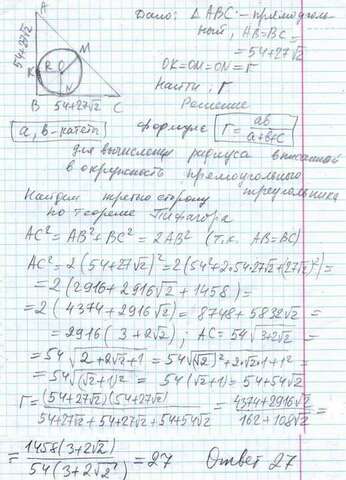 A
54+27√2
M
R
O
K
N
B 54+27√2 C
Дано: △ABC - прямоуголь-
ный, AB=BC =
= 54+27√2
OK=OM=ON=r
Найти: r
Решение
a, b-катеты Формула r = ab/(a+b+c)
для вычисления радиуса вписанной
в окружность прямоугольного
треугольника
Найдём третью сторону
по теореме Пифагора
AC²=AB²+BC²=2AB² (т.к. AB=BC)
AC²=2(54+27√2)²=2(54²+2·54·27√2+(27√2)²)=
=2(2916+2916√2+1458)=
=2(4374+2916√2)=8748+5832√2=
=2916(3+2√2); AC=54√(3+2√2) =
=54√(2+2√2+1) = 54√((√2)²+2·√2·1+1²) =
=54√((√2+1)²) = 54(√2+1)=54+54√2
r = (54+27√2)(54+27√2)/(54+27√2+54+27√2+54+54√2) = (4374+2916√2)/(162+108√2) =
= 1458(3+2√2)/(54(3+2√2)) = 27 Ответ 27